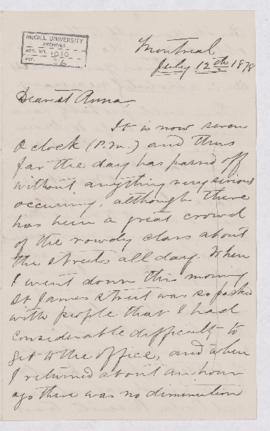 McGILL UNIVERSITY
ARCHIVES
ACC. NO. 1010
REF.
Montreal
July 12th 1878
Dearest Anna
It is now seven
O'clock (P.M.) and thus
far the day has passed off
without anything very serious
occuring, although there
has been a great crowd
of the rowdy class about
the streets all day. When
I went down this morning
St James street was so packed
with people that I had
considerable difficulty to
get to the office, and when
I returned about an hour
ago there was no diminution